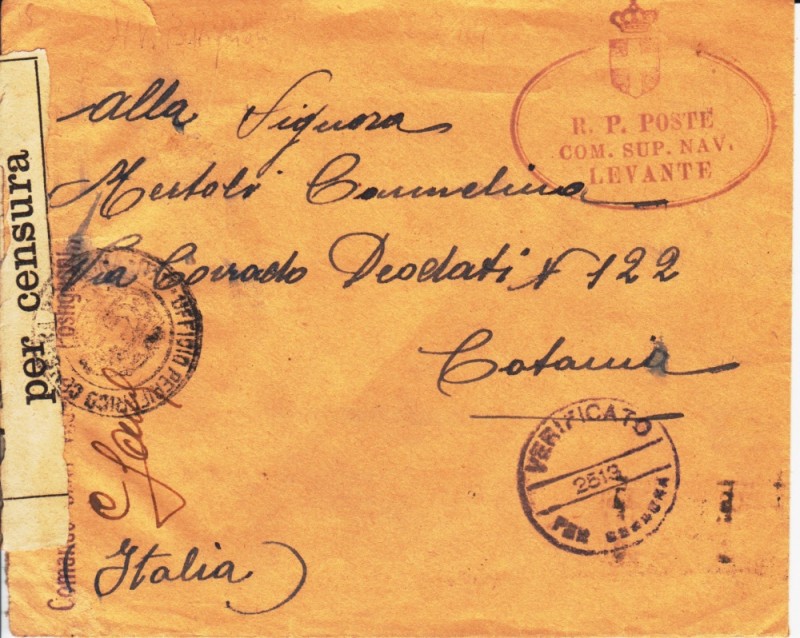 R. P. POSTE
COM. SUP. NAV.
LEVANTE
Alla Signora
Mertoli Carmelina
Via Corrado Deodati N 122
Catania
Italia
per censura
UFFICIO PERIFERICO
VERIFICATO
2519
PER CENSURA
Comando